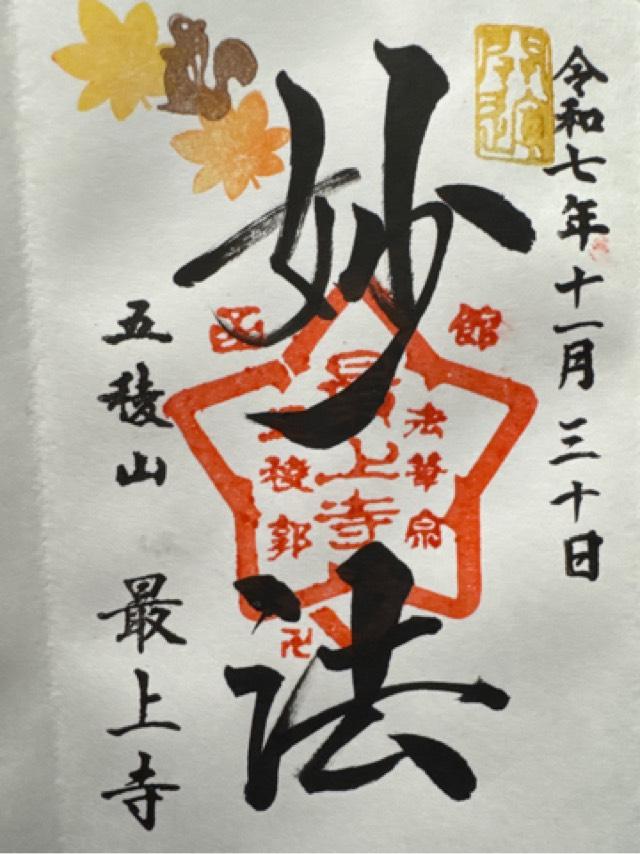 令和七年十一月三十日
開運
妙法
函館
法華宗
最上寺
五稜郭
卍
五稜山 最上寺